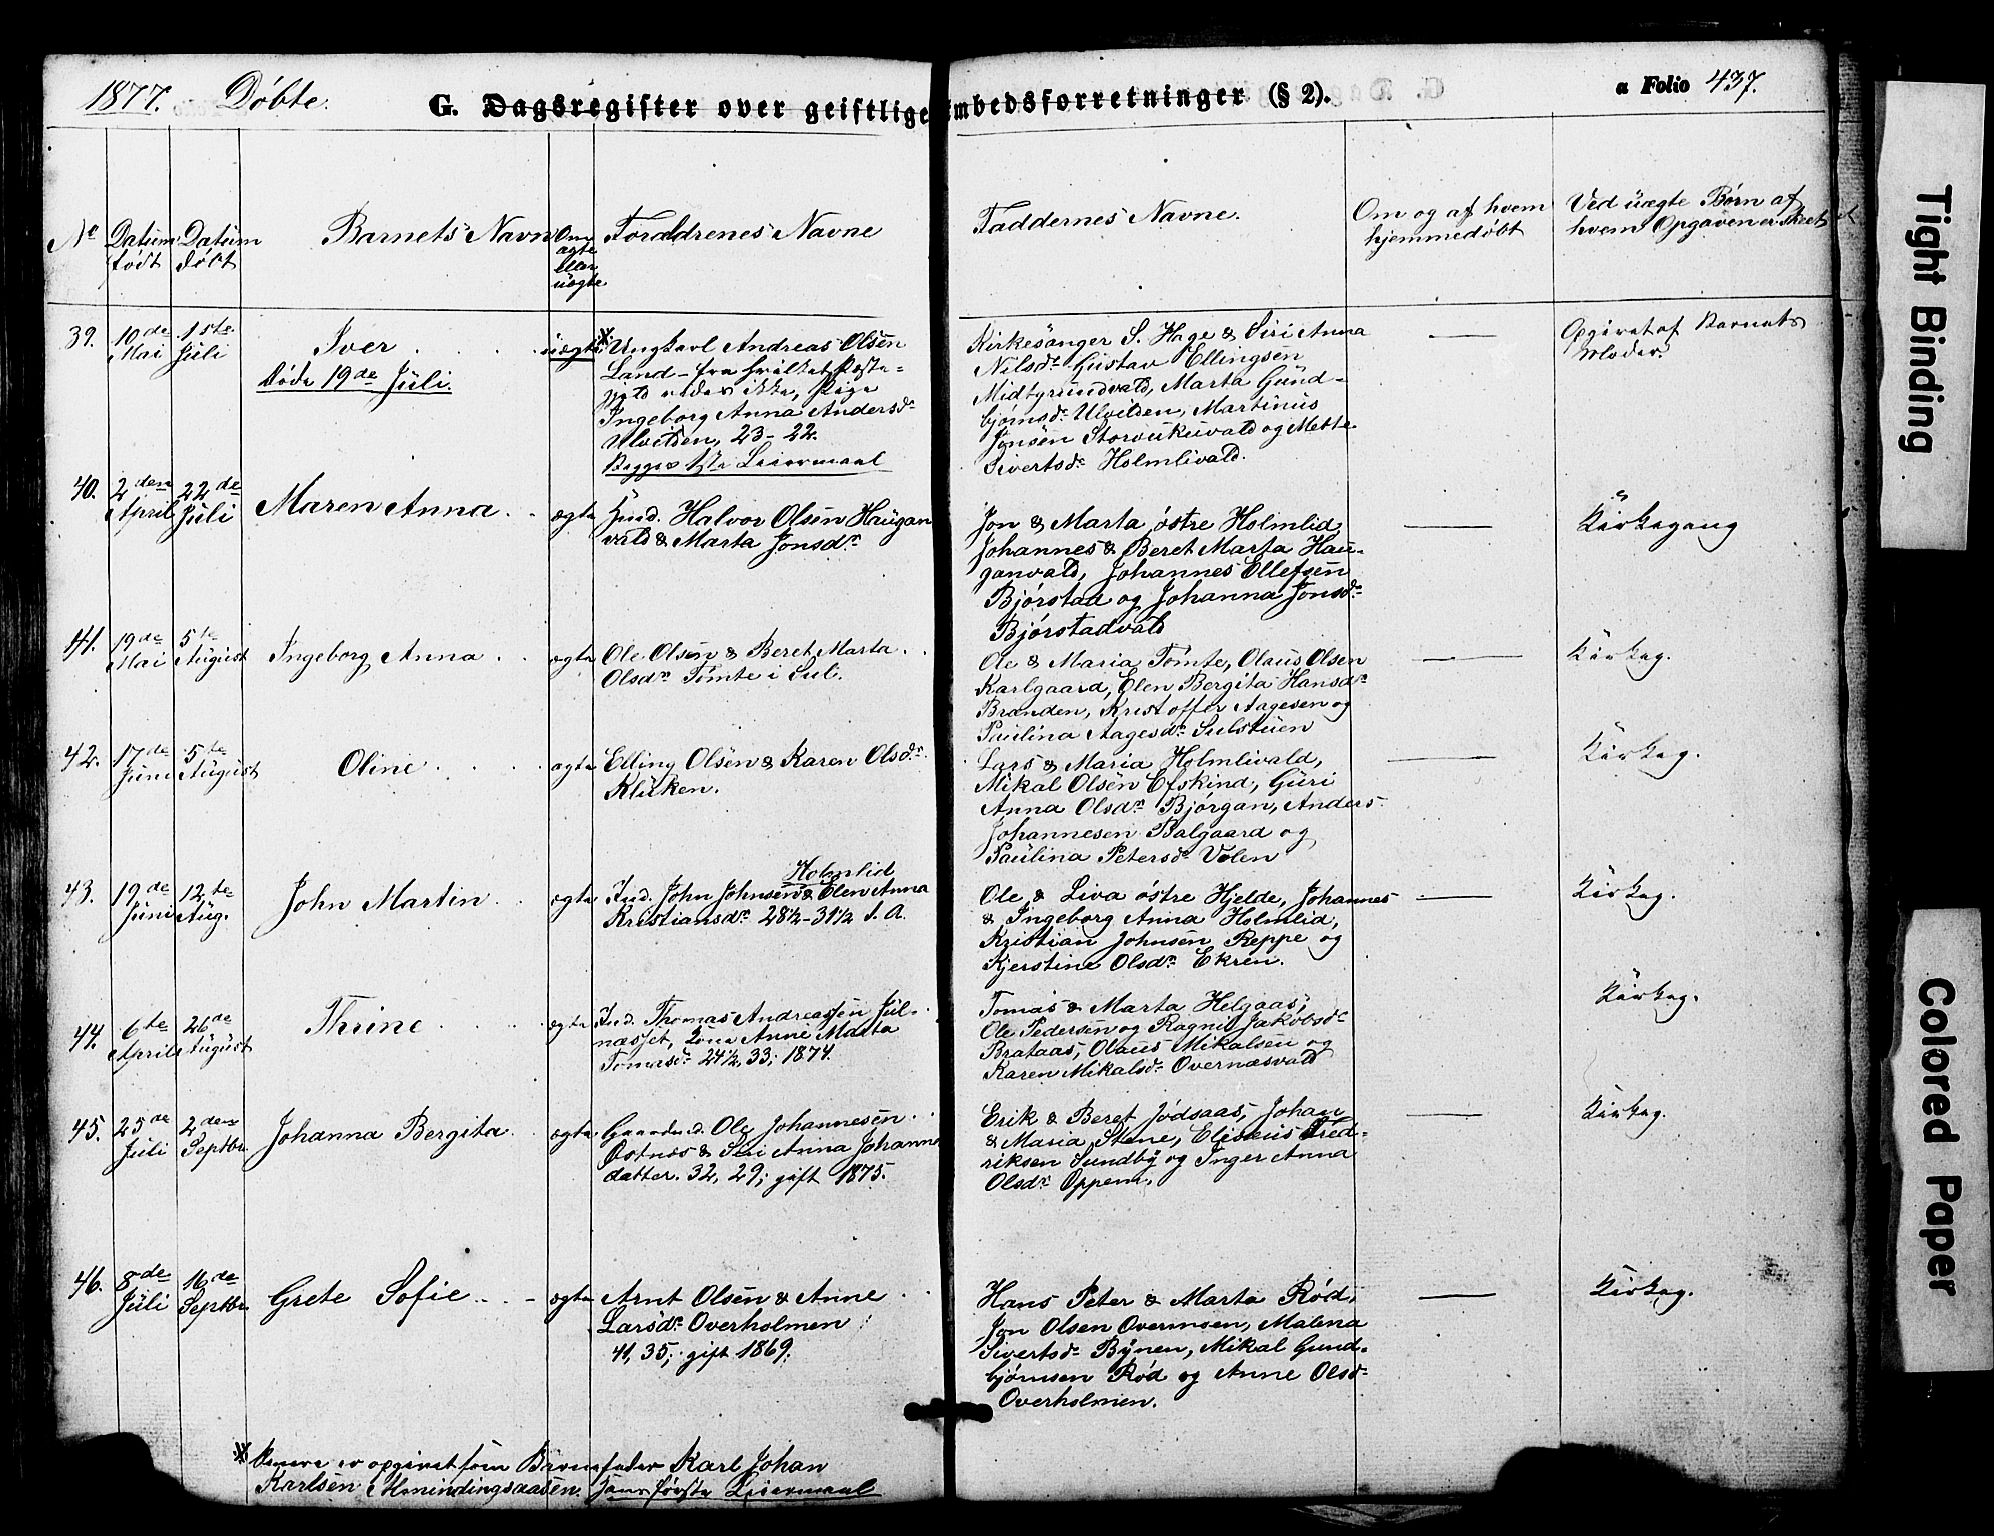 1877. Døbte.
G. Dagsregister over geistlige Embedsforretninger (§ 2).
a Folio 437.
No
Datum født
Datum døbt
Barnets Navn
Om ægte eller uægte
Forældrenes Navne
Faddernes Navne.
Om og af hvem hjemmedøbt
Ved uægte Børn af hvem Opgaven er skeet
39.
10de Mai
1ste Juli
Iver
Døde 19de Juli.
uægte
* Ungkarl Andreas Olsen
Land - fra hvilket Præste-
gjeld vides ikke, Pige
Ingeborg Anna Andersdr
Ulvilden, 23 - 22.
Begges 1ste Leiermaal
Kirkesanger S. Hage & Siri Anna
Nilsdr Gustav Ellingsen
Midtgrundvald, Marta Gund-
bjørnsdr Ulvilden, Martinus
Jonsen Storvukuvald og Mette
Sivertsdr Holmlivald.
Opgivet af Barnets
Moder.
40.
2den April
22de Juli
Maren Anna
ægte
Halvor Olsen Haugan
vald & Marta Jonsdr
Jon & Marta østre Holmlid
Johannes & Beret Marta Hau-
ganvald, Johannes Ellefsen
Bjørstad og Johanna Jonsdr
Bjørstadvald
Kirkegang
41.
19de Mai
5te August
Ingeborg Anna
ægte
Ole Olsen & Beret Marta
Olsdr Tømte i Sul.
Ole & Maria Tømte, Olaus Olsen
Karlgaard, Elen Bergita Hansdr
Branden, Kristoffer Aagesen og
Paulina Aagesdr Sulstuen
Kirkeg.
42.
17de Juni
5te August
Oline
ægte
Elling Olsen & Karen Olsdr
Klukken.
Lars & Maria Holmlivald,
Mikal Olsen Efskind, Guri
Anna Olsdr Bjørgan, Anders
Johannesen Balgaard og
Paulina Petersdr Volen
Kirkeg.
43.
19de Juni
12te Aug.
John Martin
ægte
Holmlid
Ind. John Johnsen & Elen Anna
Kristiansdr 28½ - 31½ S. A.
Ole & Liva østre Hjelde, Johannes
& Ingeborg Anna Holmlid,
Kristian Johnsen Reppe og
Kjerstine Olsdr Ekren.
Kirkeg.
44.
6te April
26de August
Thrine
ægte
Ind. Thomas Andreassen Jul-
næsset, Kone Anne Marta
Tomasdr 24½, 33; 1874.
Tomas & Marta Helgaas,
Ole Pedersen og Ragnil Jakobsdr
Brataas, Olaus Mikalsen og
Karen Mikalsdr Overnæsvald
Kirkeg.
45.
25de Juli
2den Septbr.
Johanna Bergita
ægte
Gaardmd. Ole Johannesen
Østnes & Siri Anna Johannes
datter. 32, 29; gift 1875.
Erik & Beret Jødsaas, Johan
& Maria Stene, Eliseus Fred-
riksen Sundby og Inger Anna
Olsdr Oppem,
Kirkeg.
46.
8de Juli
16de Septbr.
Grete Sofie
ægte
Arnt Olsen & Anne
Larsdr Overholmen
41, 35; gift 1869.
Hans Peter & Marta Rød,
Jon Olsen Overmoen, Malena
Sivertsdr Bynen, Mikal Gund-
bjørnsen Rød og Anne Olsdr
Overholmen.
Kirkeg.
* Senere er opgivet som Barnefader Karl Johan
Karlsen Almindingsaasen. Hans første Leiermaal
Tight Binding
Colored Paper